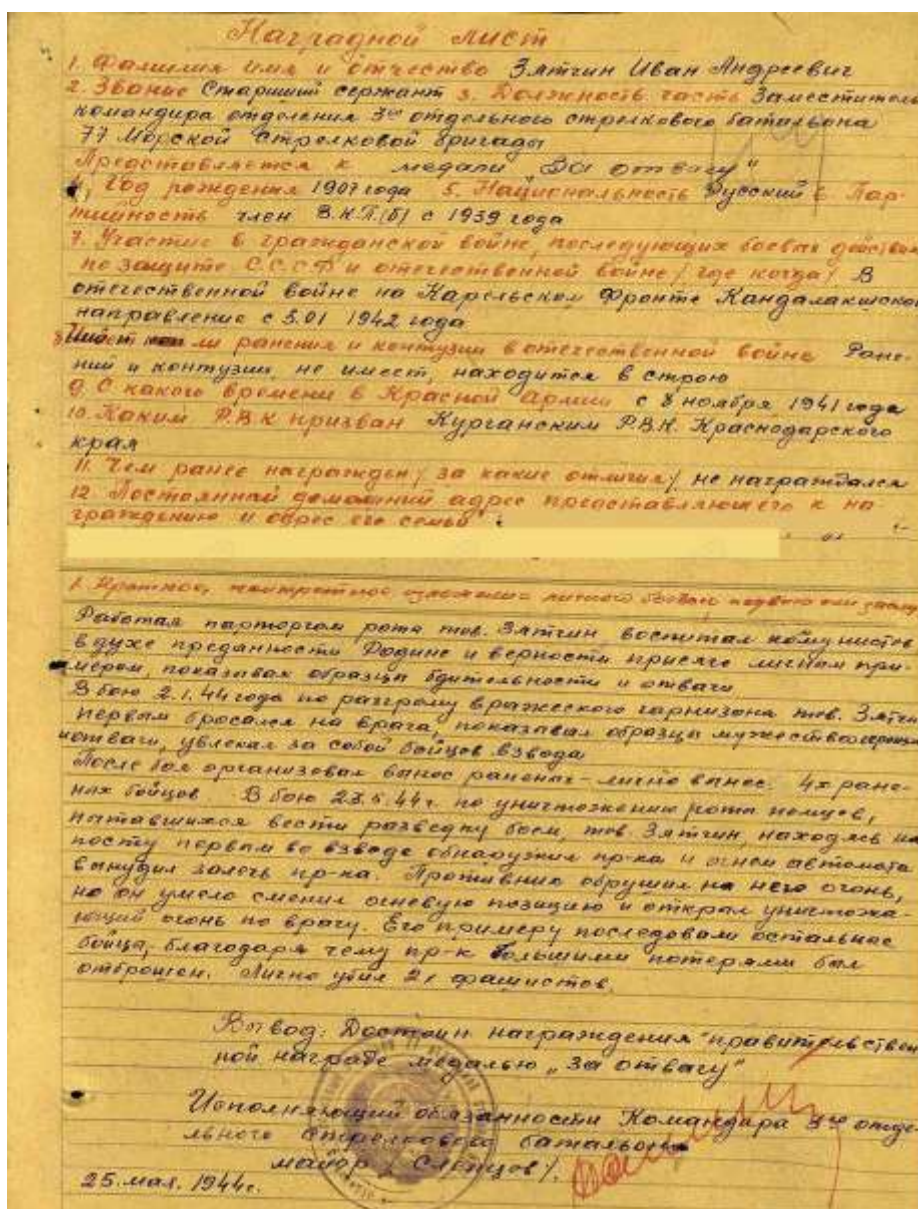 Наградной лист
1. Фамилия имя и отчество Зятчин Иван Андреевич
2. Звание Старший сержант 3. Должность часть Заместитель
командира отделения 3го отдельного стрелкового батальона
77 Морской Стрелковой бригады
Представляется к медали „За отвагу"
4. Год рождения 1907 года 5. Национальность Русский 6 Пар-
тийность член В.К.П.(б) с 1939 года
7. Участие в гражданской войне, последующих боевых действия
по защите С.С.С.Р и отечественной войне / где когда / В
отечественной войне на Карельском Фронте Кандалакшско
направление с 3.01 1942 года
ли ранения и контузии в отечественной война Ране-
ний и контузии не имеет, находится в строю
9. С какого времени в Красной армии с 8 ноября 1941 года
10. Каким Р.В.К призван Курганским Р.В.К. Краснодарского
края
11. Чем ранее награжден / за какие отличия / не награждался
12 Постоянный домашний адрес представляющего к на
граждению и адрес его семьи
1. Краткое, конкретное изложение личного боевого подвига или
Работая парторгом рота тов. Зятчин воспитал комунистов
в духе преданности Родине и верности присяге личным при-
мером, показывая образцы бдительности и отваги
В бою 2.1.44 года по разгрому вражеского гарнизона тов. Зятчи
первым бросался на врага, показывал образцы мужества
и отваги, увлекая за собой бойцов взвода
После боя организовал вынос раненых - лично вынес 4х ране-
ных бойцов. В бою 23.5.44г. по уничтожению рота немцев,
пытавшихся вести разведку боем, тов. Зятчин, находясь на
посту первым во взводе обнаружил пр-ка и огнем автомата
вынудил залечь пр-ка. Противник обрушил на него огонь,
но он умело сменил огневую позицию и открыл уничтожа-
ющий огонь по врагу. Его примеру последовали остальные
бойца, благодаря чему пр-к большими потерями был
отброшен. Лично убил 2х фашистов.
Вывод: Достоин награждения правительствен
ной награде медалью „За отвагу"
Исполняющий обязанности Командира 3го отде-
льного Стрелкового батальона
майор / Слепцов /.
25. мая. 1944г.